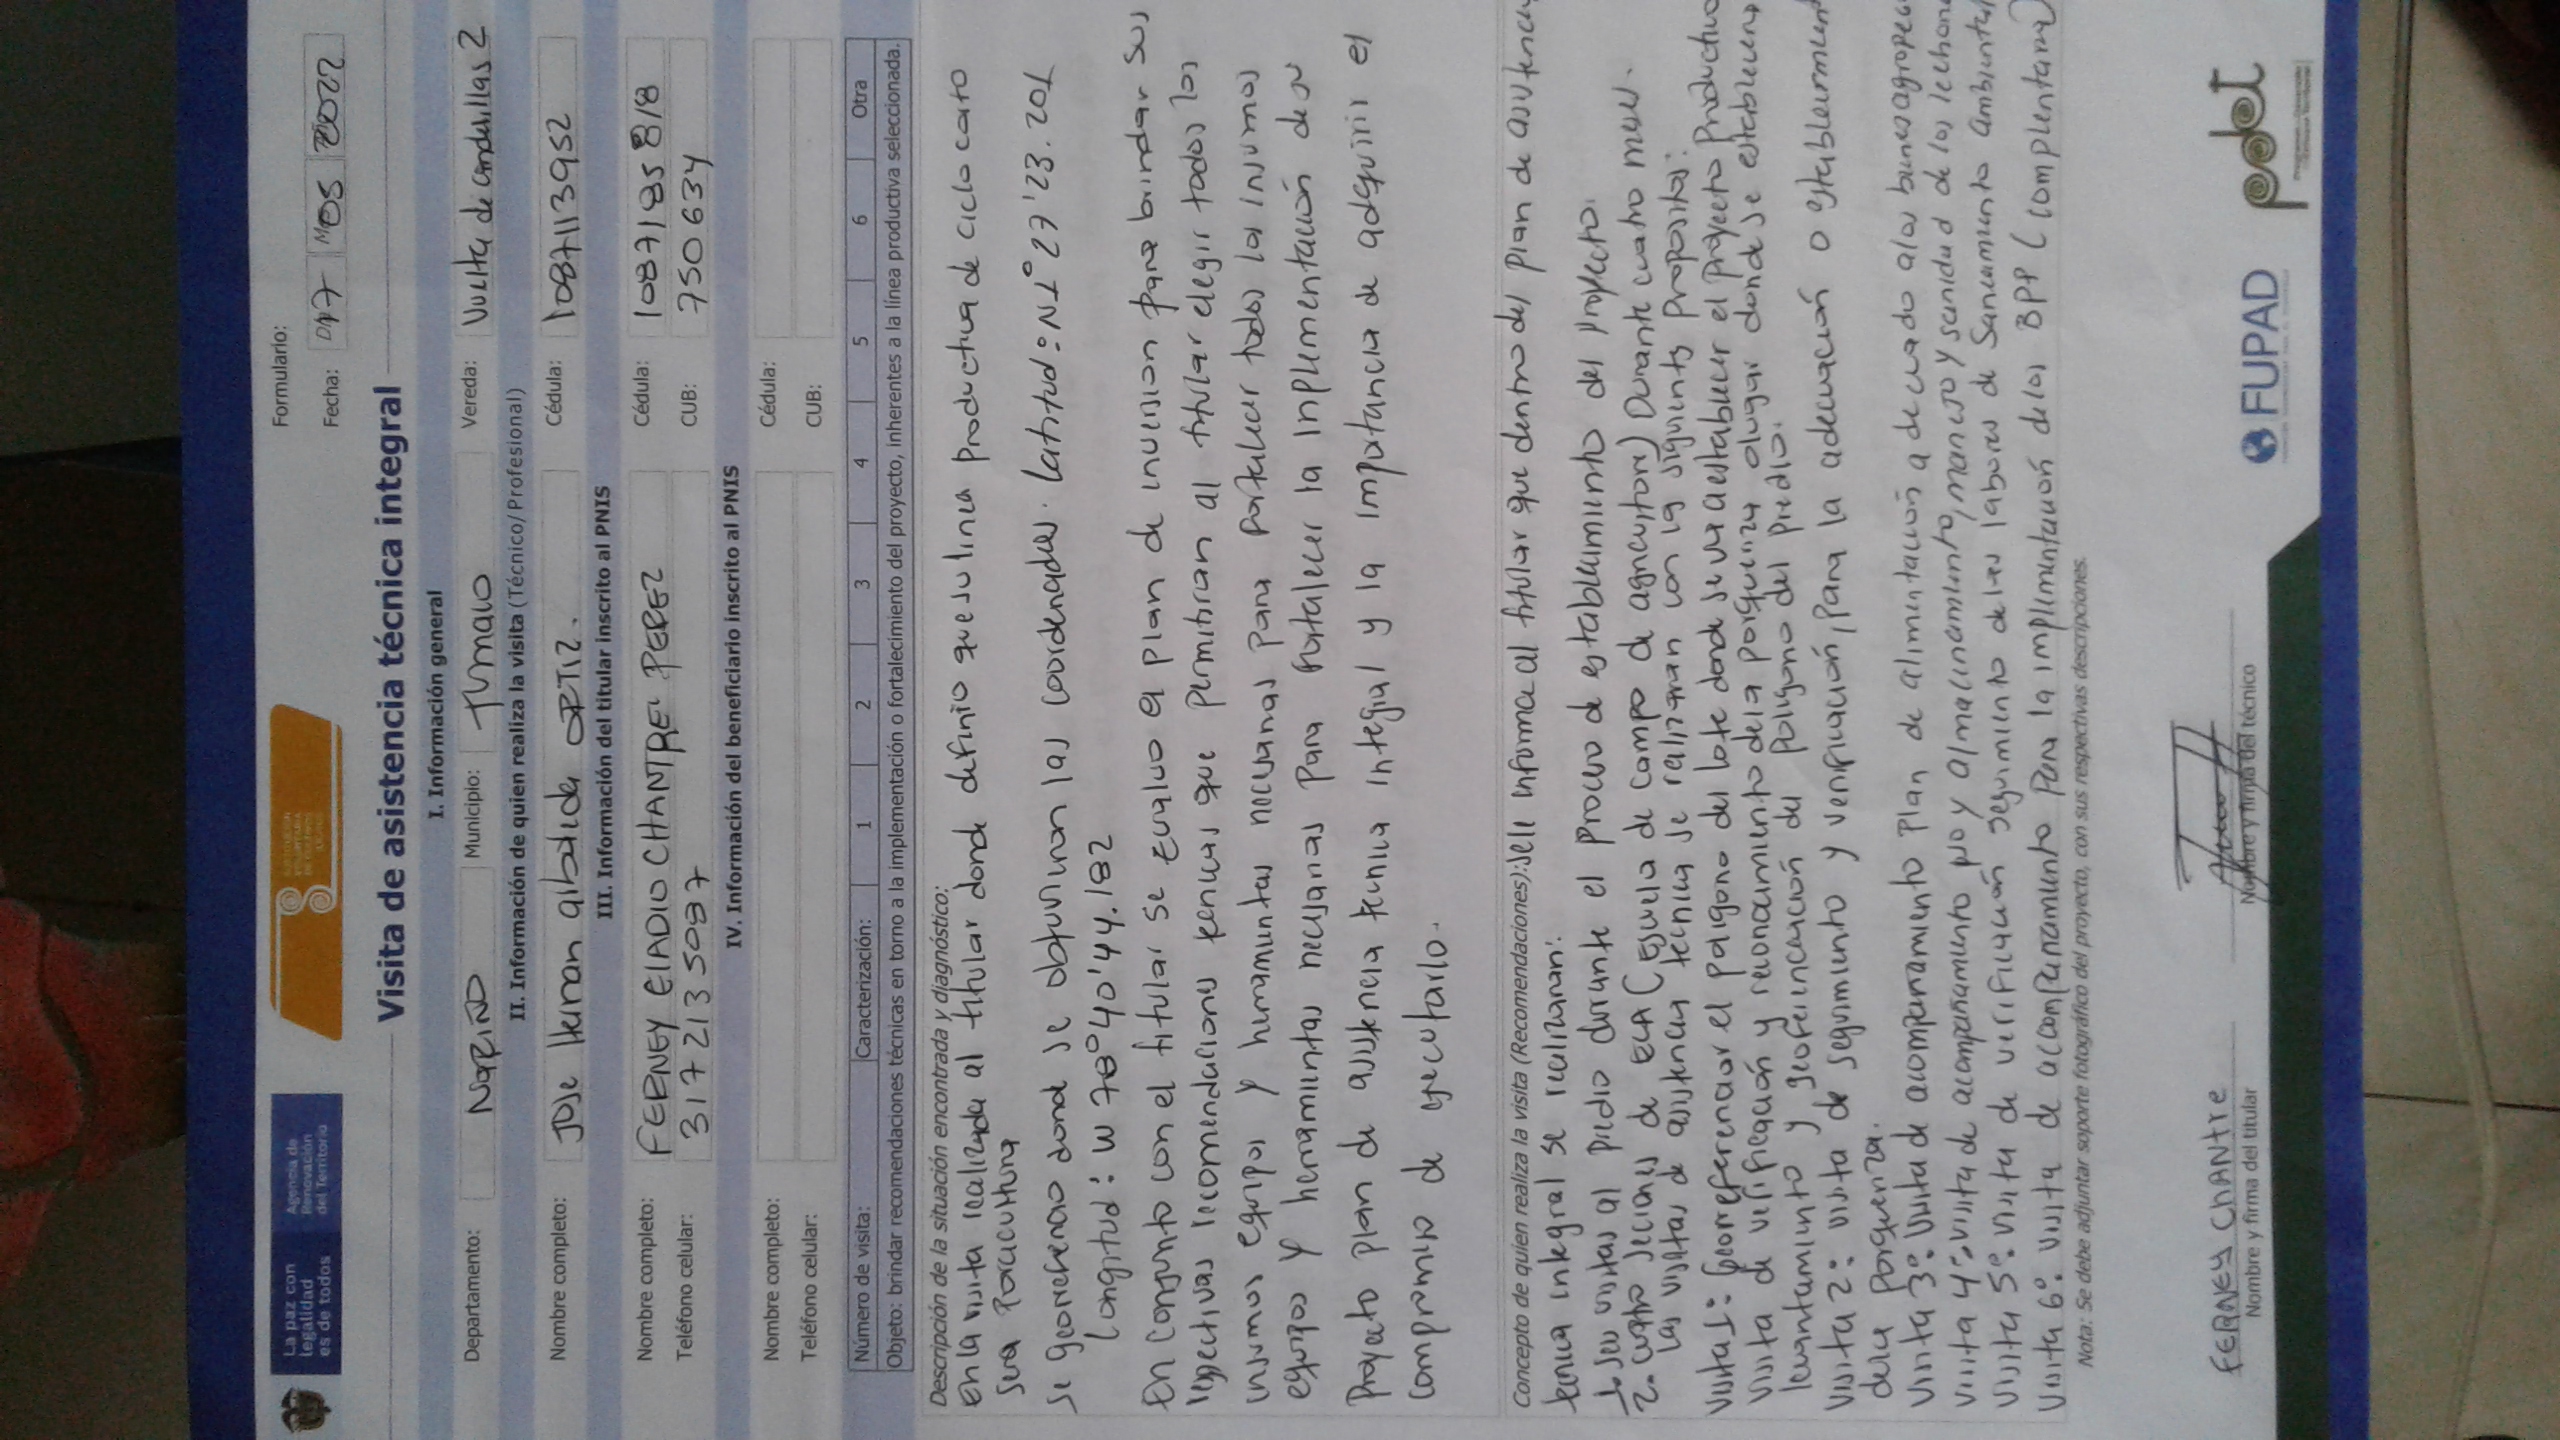 La paz con
legalidad
es de todos
Agencia de
Renovación
del Territorio
Formulario:
Fecha: 07 Mes 05 2022
Visita de asistencia técnica integral
I. Información general
Departamento: NARIÑO Municipio: TUMACO Vereda: Vuelta de candelillas 2
II. Información de quien realiza la visita (Técnico/Profesional)
Nombre completo: Jose Hernan ORTIZ. Cédula: 1087113952
III. Información del titular inscrito al PNIS
Nombre completo: FERNEY ELADIO CHANTRE PEREZ Cédula: 1087185818
Teléfono celular: 3172135097 CUB: 750634
IV. Información del beneficiario inscrito al PNIS
Nombre completo: Cédula:
Teléfono celular: CUB:
Número de visita: Caracterización: 1 2 3 4 5 6 Otra
Objeto: brindar recomendaciones técnicas en torno a la implementación o fortalecimiento del proyecto, inherentes a la línea productiva seleccionada.
Descripción de la situación encontrada y diagnóstico:
En la visita realizada al titular donde definio que su linea productiva de ciclo corto
sera Porcicultura
se georreferencio donde se obtuvieron las coordenadas. Latitud: N1°27'23.201
Longitud: W 78°40'44.182
En conjunto con el titular se evaluo el plan de inversion para brindar sus
respectivas recomendaciones tecnicas que permitiran al titular elegir todos los
insumos equipos y herramientas necesarias para fortalecer todos los insumos
equipos y herramientas necesarias para fortalecer la inplementación de su
Proyecto plan de asistencia tecnica integral y la importancia de adquirir el
compromiso de ejecutarlo.
Concepto de quien realiza la visita (Recomendaciones): se le informa al titular que dentro del plan de asistencia
tecnica integral se realizaran:
1. seis visitas al predio durante el proceso de establecimiento del proyecto.
2. cuatro seciones de ECA (Escuela de campo de agricultores) Durante cuatro meses.
Las visitas de asistencia tecnica se realizaran con los siguients propositos:
Visita 1: Georreferenciar el poligono del lote donde se va a establecer el proyecto productivo
visita de verificación y reconocimiento de la porqueriza o lugar donde se establecera
levantamiento y georreferenciación del poligono del predio.
Visita 2: visita de seguimiento y verificación, para la adecuación o establecimient
de la porqueriza.
Visita 3°: visita de acompañamiento Plan de alimentación a decuado a las buenas agropecu
Visita 4°: visita de acompañamiento y almacenamiento, manejo y sanidad de los lechone
Visita 5°: visita de verificación seguimiento de las labores de saneamiento ambiental
Visita 6°: visita de acompañamiento para la implementación de las BPP (complementaria)
Nota: Se debe adjuntar soporte fotográfico del proyecto, con sus respectivas descripciones.
FERNEY CHANTRE
Nombre y firma del titular
Nombre y firma del técnico
FUPAD
pdet